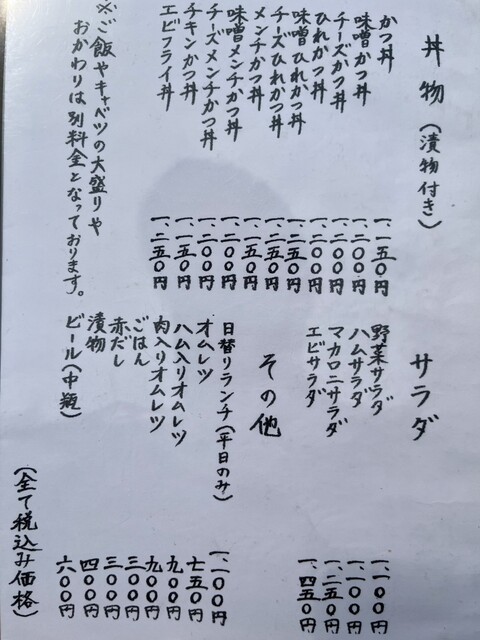 丼物(漬物付き)
かつ丼 一、一五〇円
味噌かつ丼 一、二〇〇円
チーズかつ丼 一、二〇〇円
ひれかつ丼 一、二〇〇円
味噌ひれかつ丼 一、二五〇円
チーズひれかつ丼 一、二五〇円
メンチかつ丼 一、一五〇円
味噌メンチかつ丼 一、二〇〇円
チーズメンチかつ丼 一、二〇〇円
チキンかつ丼 一、一五〇円
エビフライ丼 一、二五〇円
※ご飯やキャベツの大盛りや
おかわりは別料金となっております。
サラダ
野菜サラダ 一、一〇〇円
ハムサラダ 一、一〇〇円
マカロニサラダ 一、二五〇円
エビサラダ 一、四五〇円
その他
日替りランチ(平日のみ) 一、一〇〇円
オムレツ 七五〇円
ハム入りオムレツ 九〇〇円
肉入りオムレツ 九〇〇円
ごはん 三〇〇円
赤だし 三〇〇円
漬物 四〇〇円
ビール(中瓶) 六〇〇円
(全て税込み価格)